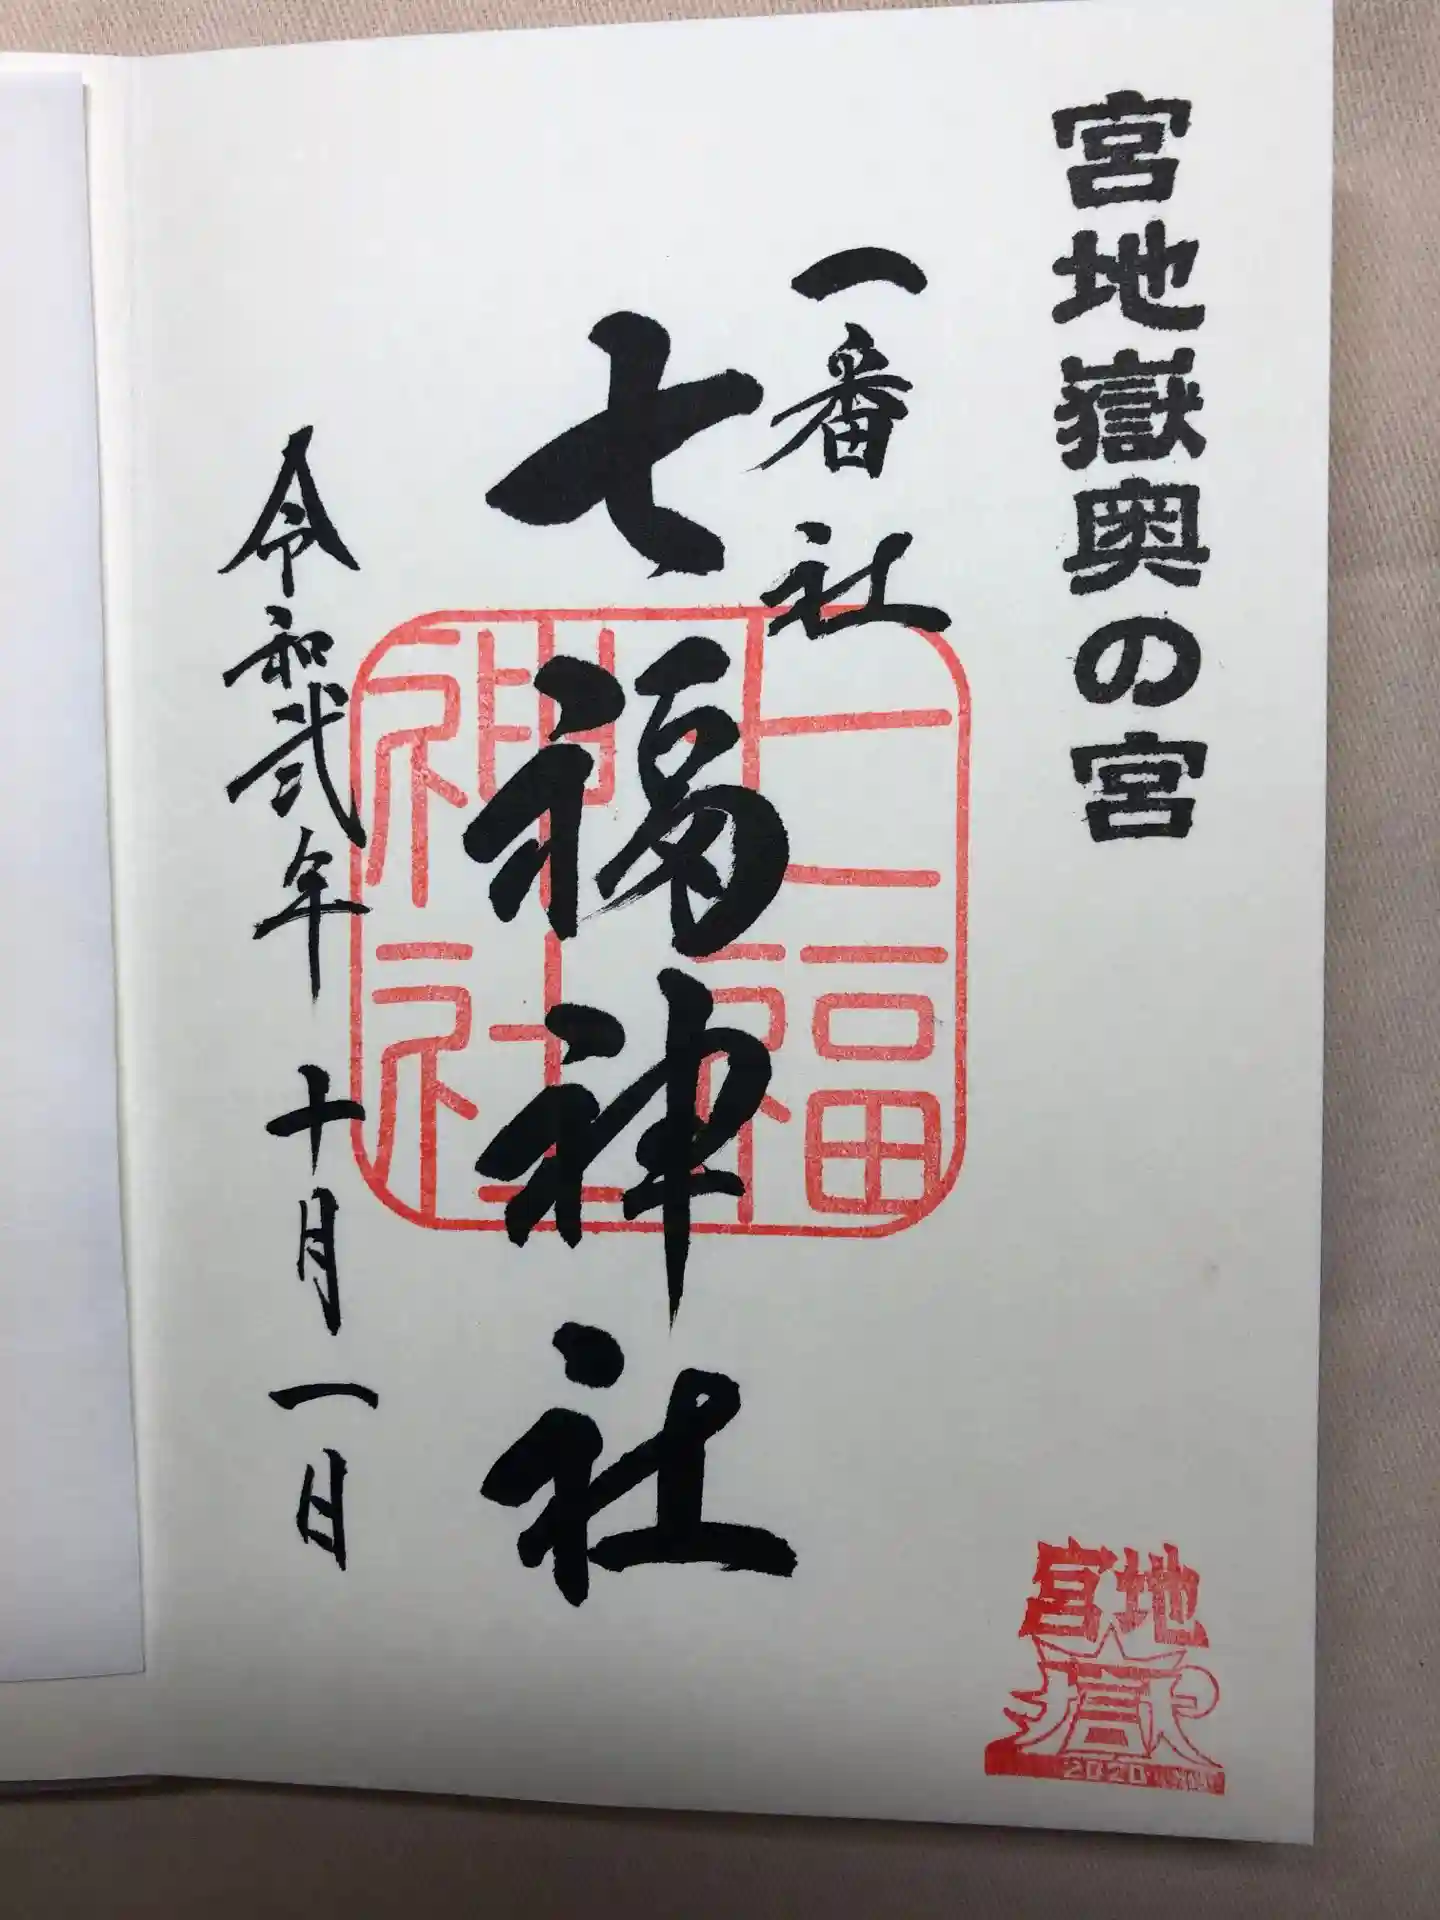 宮地嶽奥の宮
一番社
七福神社
令和弐年 十月一日
七福
神社
宮地
嶽
2020